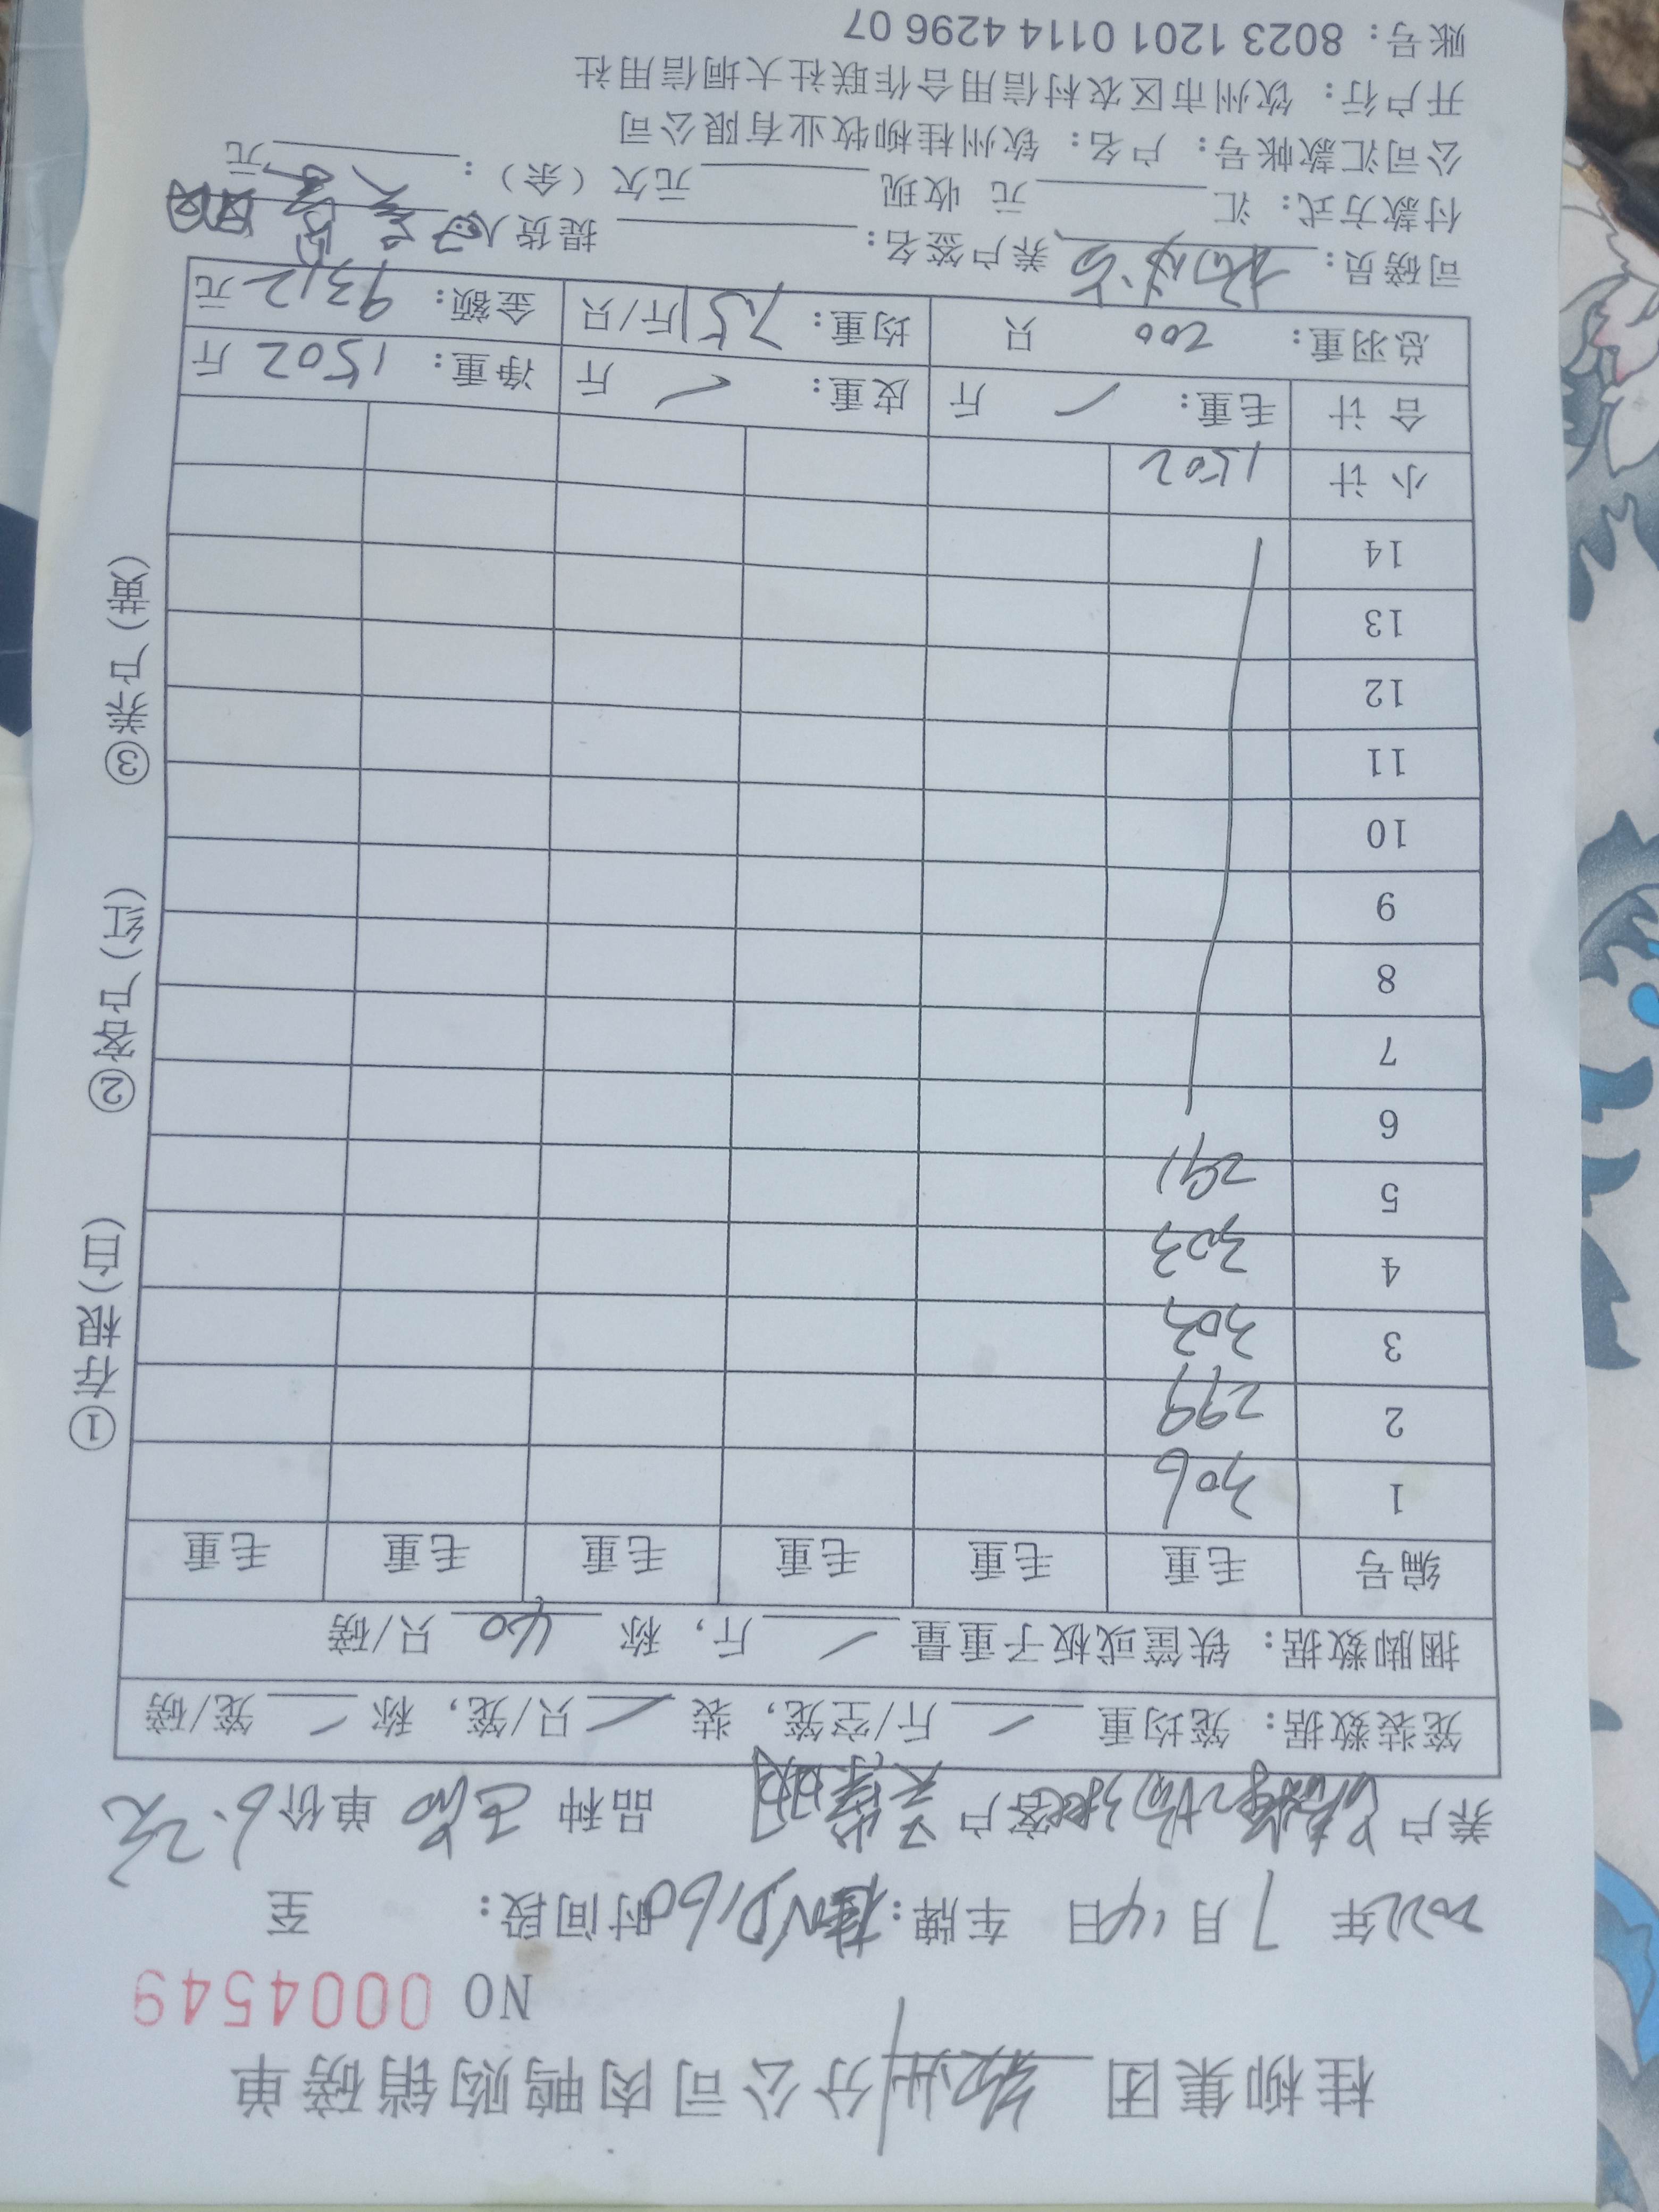 桂柳集团 钦州 分公司肉鸭购销磅单
NO 0004549
2022年 7月14日 车牌：桂ND160 时间段： 至
养户 客户 品种 单价 6.2元
笼装数据：笼均重 斤/空笼，装 只/笼，称 笼/磅
捆脚数据：铁筐或板子重量 斤，称 40 只/磅
编号 毛重 毛重 毛重 毛重 毛重 毛重
1 306
2 299
3 303
4 303
5 291
6
7
8
9
10
11
12
13
14
小计 1502
合计 毛重： 斤 皮重： 斤 净重：1502 斤
总羽重：200 只 均重：7.51斤/只 金额：9312元
司磅员： 养户签名： 提货人
付款方式：汇 元 收现 元欠（余）： 元
公司汇款帐号：户名：钦州桂柳牧业有限公司
开户行：钦州市区农村信用合作联社大垌信用社
账号：8023 1201 0114 4296 07
①存根(白) ②客户(红) ③养户(黄)